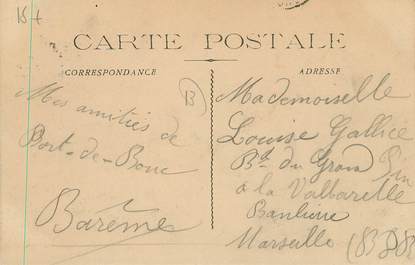 15+
CARTE POSTALE
CORRESPONDANCE
ADRESSE
Mes amitiés de
Port-de-Bouc
Barême
13
Mademoiselle
Louise Gallice
Bd du Grand Pin
à la Valbarelle
Banlieue
Marseille